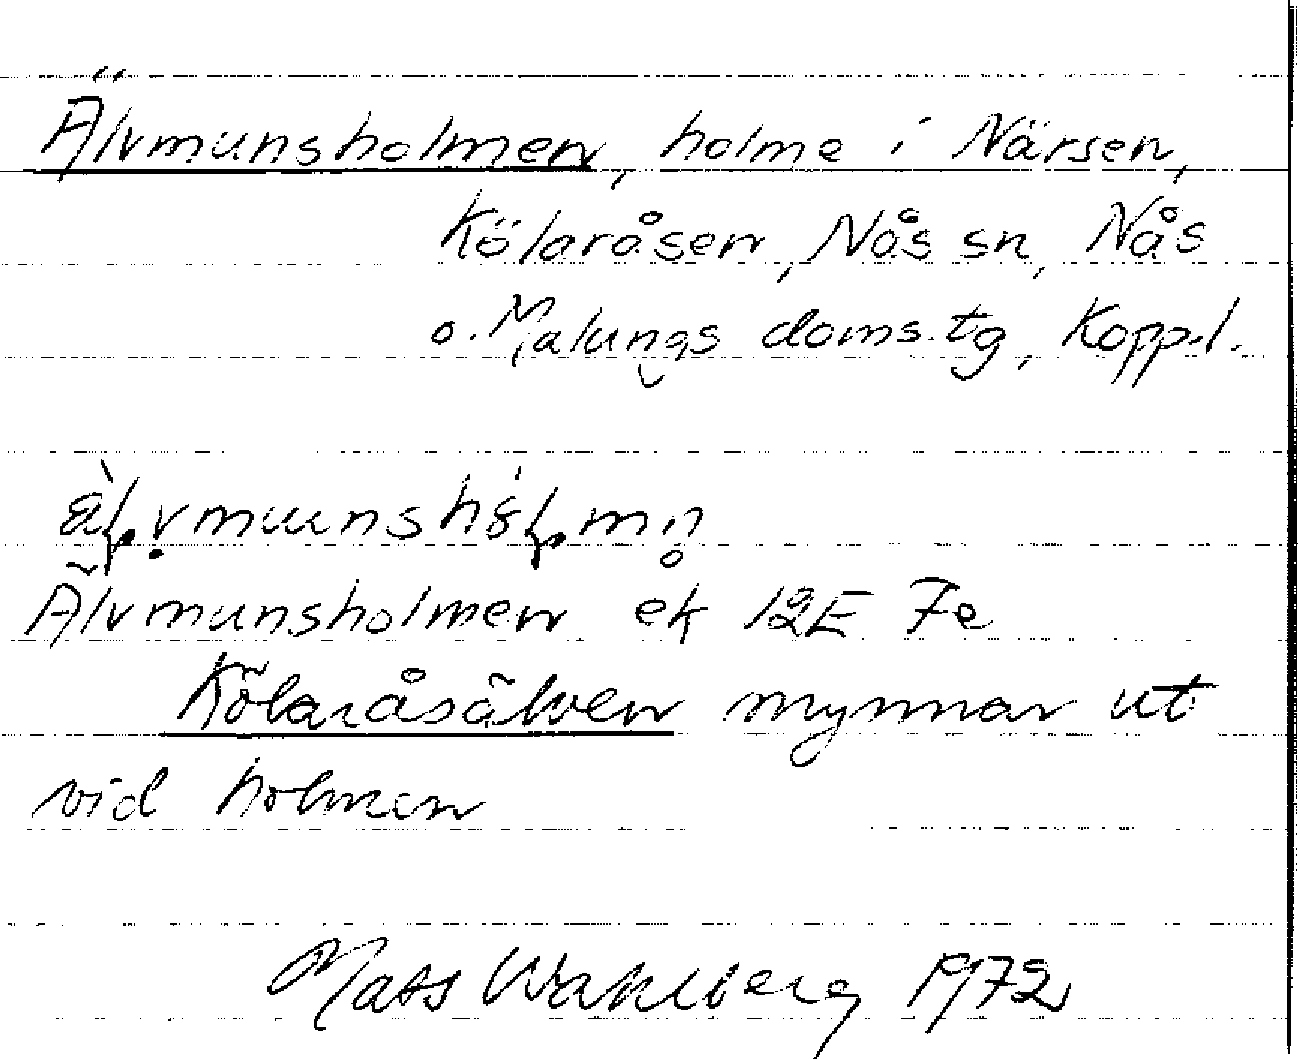 Älvmunsholmen, holme i Närsen,
Kölaråsen, Nås sn, Nås
o. Malungs doms.tg, Kopp.l.
Älvmunsholmen ek 12E 7e
Kölaråsälven mynnar ut
vid holmen
Mats Wahlberg 1972